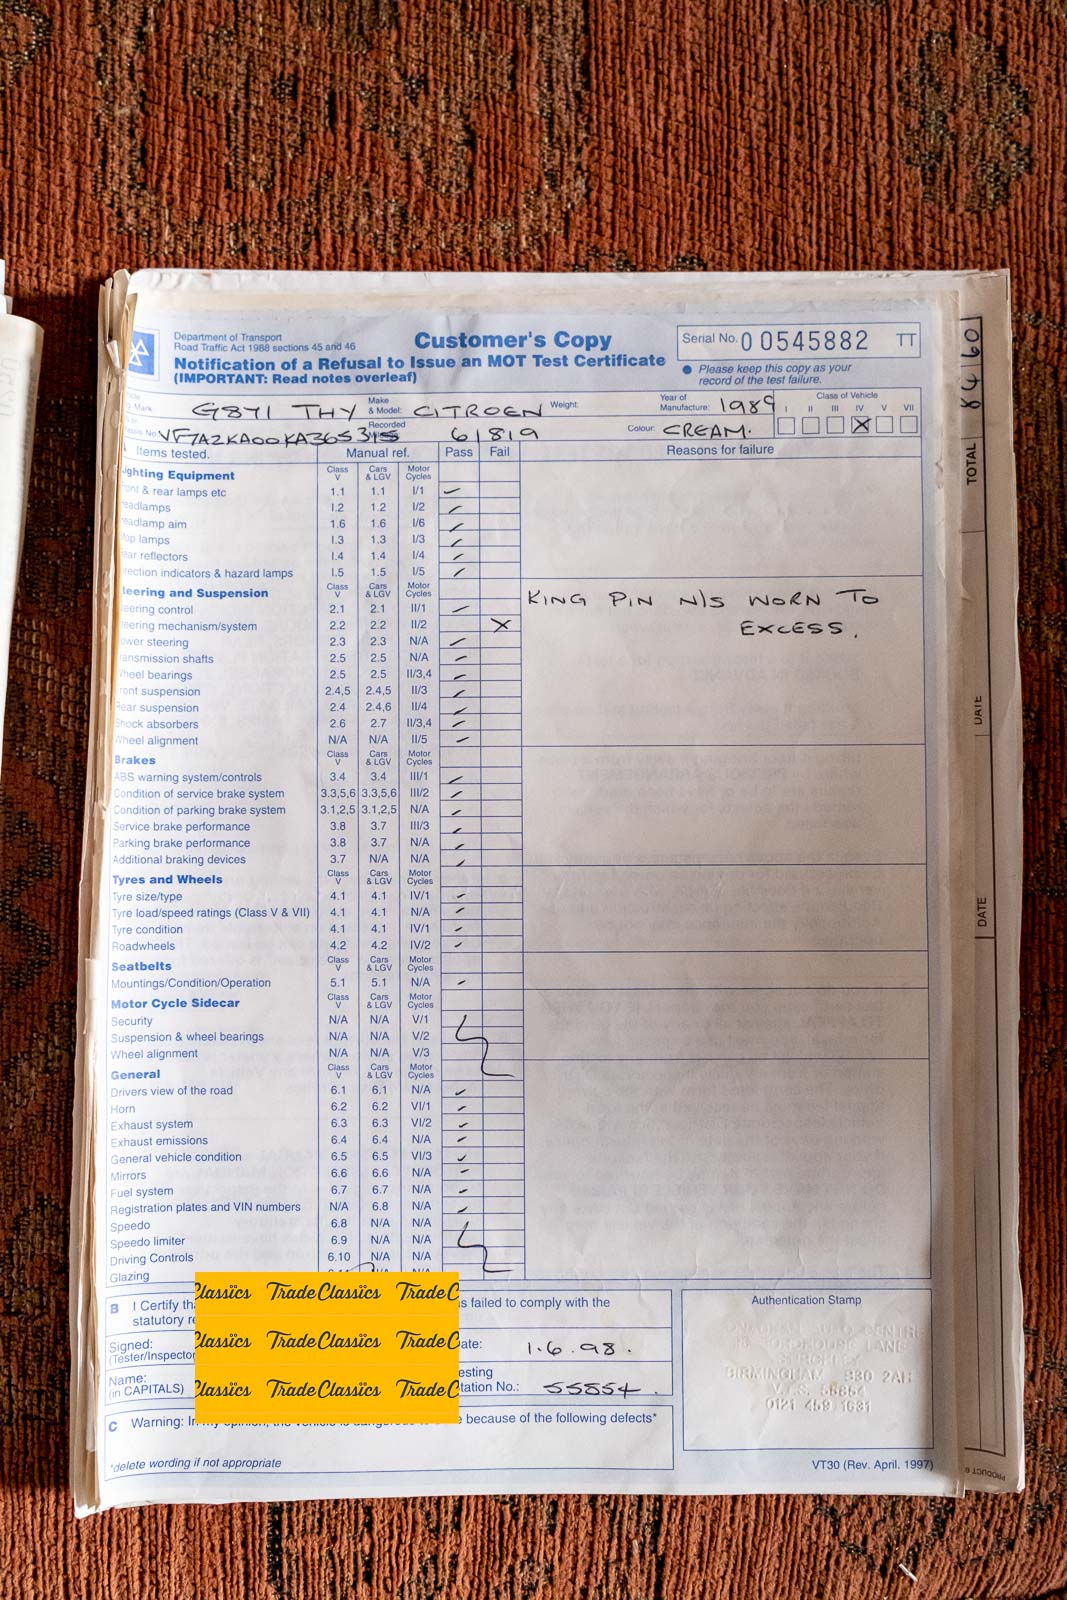 Department of Transport
Road Traffic Act 1988 sections 45 and 46
Customer's Copy
Notification of a Refusal to Issue an MOT Test Certificate
(IMPORTANT: Read notes overleaf)
Serial No. 0 0545882 TT
Please keep this copy as your
record of the test failure.
Mark G871 THY Make & Model: CITROEN Weight: Year of Manufacture: 1989
Class of Vehicle
I II III IV V VII
X
No. VF7A2KA00KA365315 Recorded 61819 Colour: CREAM.
Items tested. Manual ref. Pass Fail Reasons for failure
Lighting Equipment Class V Cars & LGV Motor Cycles
Front & rear lamps etc 1.1 1.1 I/1
Headlamps 1.2 1.2 I/2
Headlamp aim 1.6 1.6 I/6
Stop lamps 1.3 1.3 I/3
Rear reflectors 1.4 1.4 I/4
Direction indicators & hazard lamps 1.5 1.5 I/5
Steering and Suspension Class V Cars & LGV Motor Cycles
KING PIN N/S WORN TO
EXCESS.
Steering control 2.1 2.1 II/1
Steering mechanism/system 2.2 2.2 II/2 X
Power steering 2.3 2.3 N/A
Transmission shafts 2.5 2.5 N/A
Wheel bearings 2.5 2.5 II/3,4
Front suspension 2.4,5 2.4,5 II/3
Rear suspension 2.4 2.4,6 II/4
Shock absorbers 2.6 2.7 II/3,4
Wheel alignment N/A N/A II/5
Brakes Class V Cars & LGV Motor Cycles
ABS warning system/controls 3.4 3.4 III/1
Condition of service brake system 3.3,5,6 3.3,5,6 III/2
Condition of parking brake system 3.1,2,5 3.1,2,5 N/A
Service brake performance 3.8 3.7 III/3
Parking brake performance 3.8 3.7 N/A
Additional braking devices 3.7 N/A N/A
Tyres and Wheels Class V Cars & LGV Motor Cycles
Tyre size/type 4.1 4.1 IV/1
Tyre load/speed ratings (Class V & VII) 4.1 4.1 N/A
Tyre condition 4.1 4.1 IV/1
Roadwheels 4.2 4.2 IV/2
Seatbelts Class V Cars & LGV Motor Cycles
Mountings/Condition/Operation 5.1 5.1 N/A
Motor Cycle Sidecar Class V Cars & LGV Motor Cycles
Security N/A N/A V/1
Suspension & wheel bearings N/A N/A V/2
Wheel alignment N/A N/A V/3
General Class V Cars & LGV Motor Cycles
Drivers view of the road 6.1 6.1 N/A
Horn 6.2 6.2 VI/1
Exhaust system 6.3 6.3 VI/2
Exhaust emissions 6.4 6.4 N/A
General vehicle condition 6.5 6.5 VI/3
Mirrors 6.6 6.6 N/A
Fuel system 6.7 6.7 N/A
Registration plates and VIN numbers N/A 6.8 N/A
Speedo 6.8 N/A N/A
Speedo limiter 6.9 N/A N/A
Driving Controls 6.10 N/A N/A
Glazing N/A N/A
B I Certify failed to comply with the
statutory
Signed:
(Tester/Inspector
Date: 1.6.98.
Name:
(in CAPITALS)
Testing
Station No.: 55554.
Classics TradeClassics TradeC
Classics TradeClassics TradeC
Classics TradeClassics TradeC
C Warning: In my opinion, the vehicle is dangerous because of the following defects*
*delete wording if not appropriate
Authentication Stamp
CENTRE
LANE
BIRMINGHAM B30 2AH
0121 459 1631
VT30 (Rev. April. 1997)
TOTAL 84 60
DATE
DATE
PRODUCT